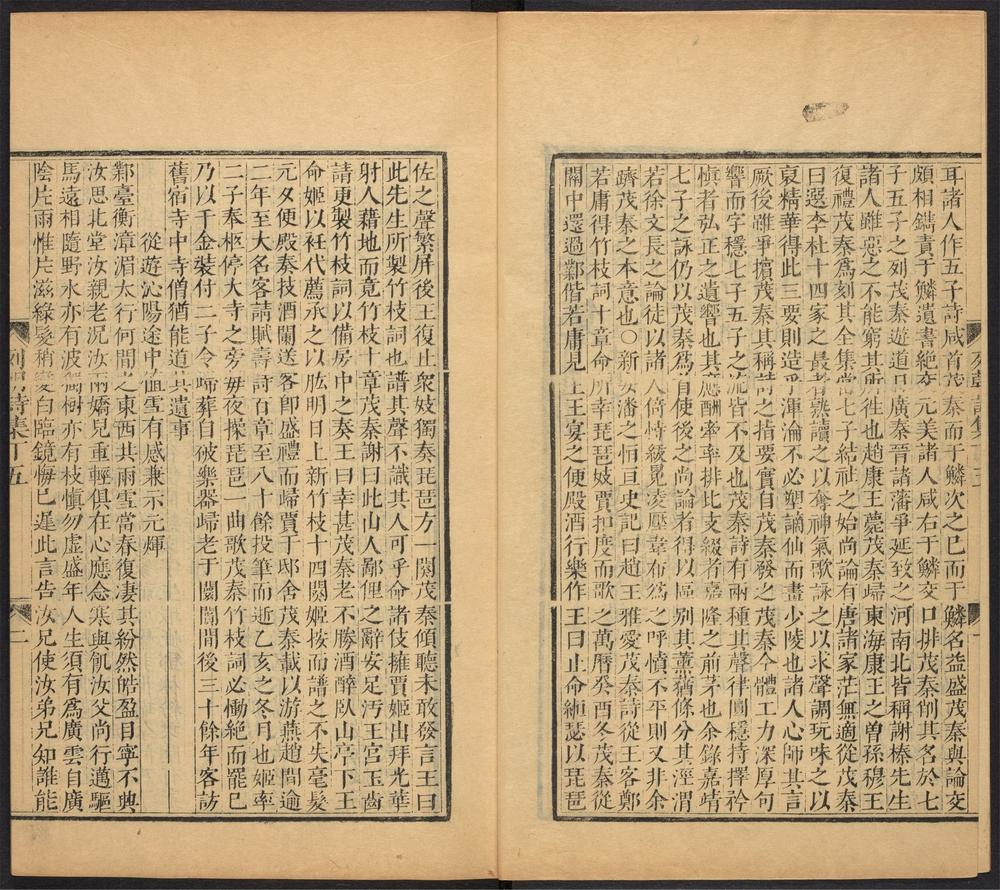 耳諸人作五子詩咸首茂秦而于鱗次之已而于鱗名益盛茂秦與論文
頗相鐫責于鱗遺書絕交元美諸人咸右于鱗交口排茂秦削其名於七
子五子之列茂秦遊道日廣秦晉諸藩爭延致之河南北皆稱謝榛先生
諸人雖惡之不能窮其所往也趙康王薨茂秦歸東海康王之曾孫穆王
復禮茂秦為刻其全集當七子結社之始尚論有唐諸家茫無適從茂秦
曰選李杜十四家之最者熟讀之以奪神氣歌詠之以求聲調玩味之以
裒精華得此三要則造乎渾淪不必塑謫仙而畫少陵也諸人心師其言
厥後雖爭擯茂秦其稱詩之指要實自茂秦發之茂秦今體工力深厚句
響而字穩七子五子之流皆不及也茂秦詩有兩種其聲律圓穩持擇矜
慎者弘正之遺響也其應酬牽率排比支綴者嘉隆之前茅也余錄嘉靖
七子之詠仍以茂秦為首使後之尚論者得以區別其薰蕕條分其涇渭
若徐文長之論徒以諸人倚恃紱冕凌壓韋布為之呼憤不平則又非余
躋茂秦之本意也○新安潘之恒亘史記曰趙王雅愛茂秦詩從王客鄭
若庸得竹枝詞十章命所幸琵琶妓賈扣度而歌之萬曆癸酉冬茂秦從
關中還過鄴偕若庸見王王宴之便殿酒行樂作王曰止命緪瑟以琵琶
佐之聲繁屏後王復止衆妓獨奏琵琶方一闋茂秦傾聽未敢發言王曰
此先生所製竹枝詞也譜其聲不識其人可乎命諸伎擁賈姬出拜光華
射人藉地而竟竹枝十章茂秦謝曰此山人鄙俚之辭安足汚王宮玉齒
請更製竹枝詞以備房中之奏王曰幸甚茂秦老不勝酒醉臥山亭下王
命姬以衽代薦承之以肱明日上新竹枝十四闋姬按而譜之不失毫髮
元夕便殿奏技酒闌送客即盛禮而歸賈于邸舍茂秦載以游燕趙間逾
二年至大名客請賦壽詩百章至八十餘投筆而逝乙亥之冬月也姬率
二子奉柩停大寺之旁毋夜操琵琶一曲歌茂秦竹枝詞必慟絕而罷已
乃以千金裝付二子令歸葬自破樂器歸老于闤闠間後三十餘年客訪
舊宿寺中寺僧猶能道其遺事
從遊沁陽途中值雪有感兼示元煇
鄴臺衡漳湄太行何間之東西共雨雪當春復凄其紛然皓盈目寧不興
汝思北堂汝親老況汝兩嬌兒重輕俱在心應念寒與飢汝父尚行邁驅
馬遠相隨野水亦有波獨樹亦有枝慎勿虛盛年人生須有為廣雲自廣
陰片雨惟片滋綠髮稍變白臨鏡悔已遲此言告汝兄使汝弟兄知誰能
列朝詩集丁五
二